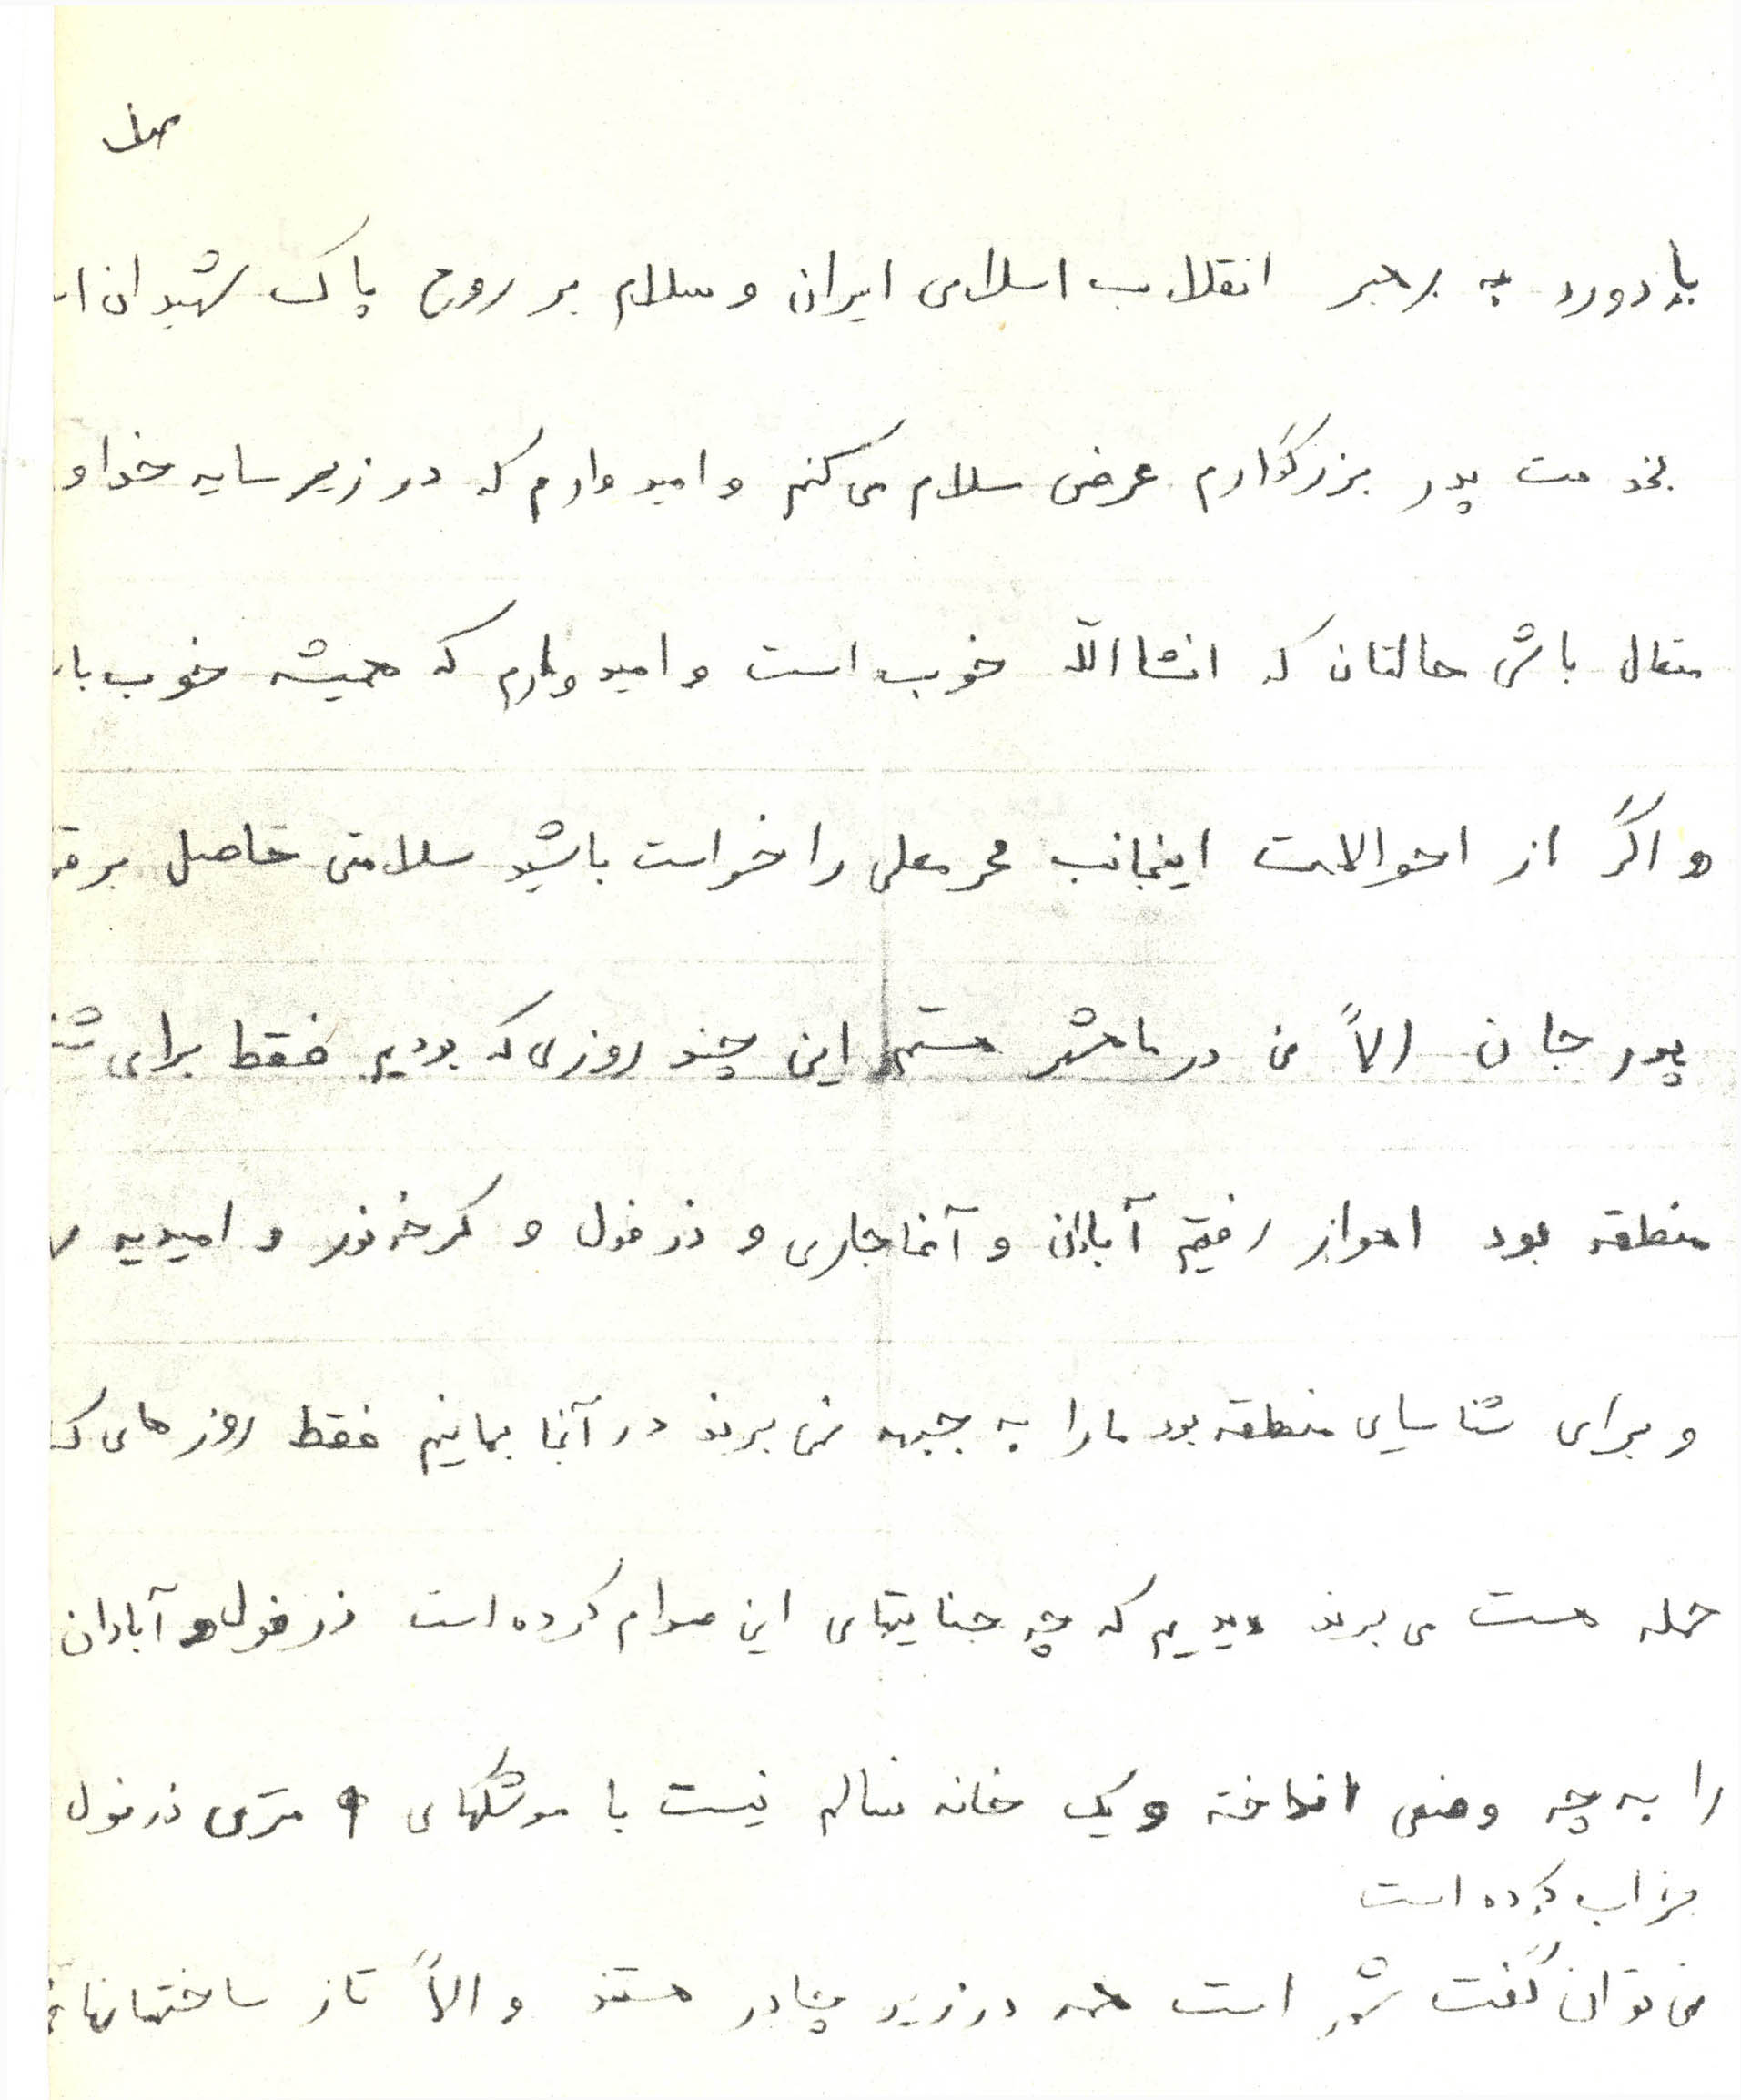 با درود به رهبر انقلاب اسلامی ایران و سلام بر روح پاک شهیدان
بخدمت پدر بزرگوارم عرض سلام می کنم و امیدوارم که در زیر سایه خداو
متعال باشی حالتان که انشاالله خوب است و امیدوارم که همیشه خوب با
و اگر از احوالات اینجانب محرمعلی را خواست باشید سلامتی حاصل برقر
پدر جان الاً من در ماهشهر هستم این چند روزی که بودیم فقط برای شنا
منطقه بود اهواز رفتیم آبادان و آغاجاری و دزفول و کرخه نور و امیدیه
و برای شناسایی منطقه بود ما را به جبهه نمی برند در آنجا بمانیم فقط روزهای ک
حمله هست می برند دیدیم که چه جنایتهای این صدام کرده است دزفول و آبادان
را به چه وضعی انداخته و یک خانه سالم نیست با موشکهای ۹ متری دزفول
خراب کرده است
می توان گفت شهر است همه در زیر چادر هستند و الاً تاز ساختمانها